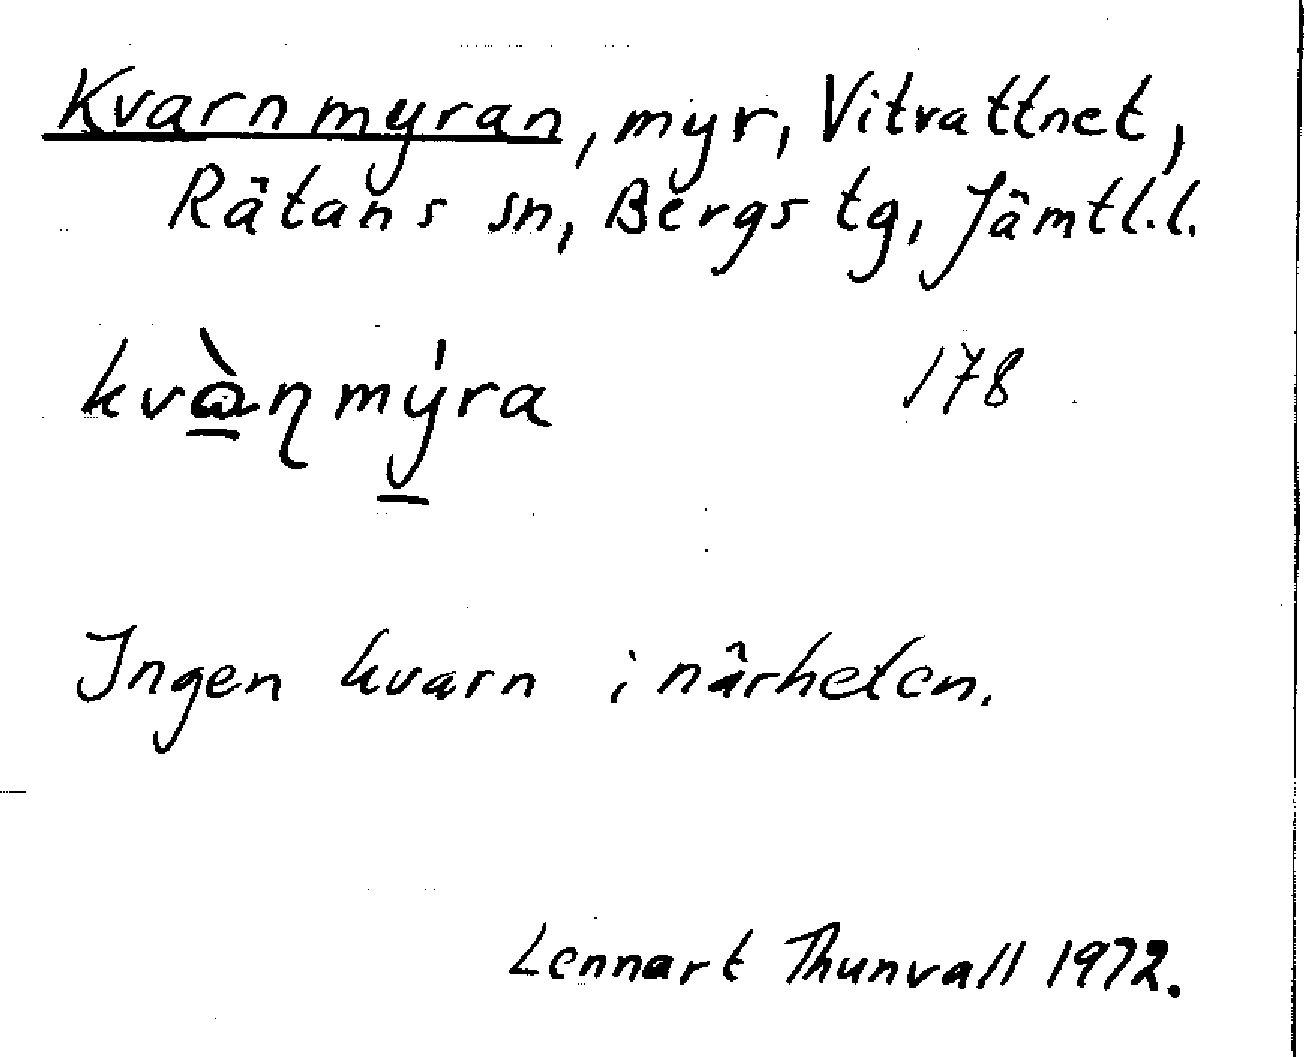 Kvarnmyran, myr, Vitvattnet,
Rätans sn, Bergs tg, Jämtl.l.
kvɑ̱̀ɳmý̱ra 178
Ingen kvarn i närheten.
Lennart Thunvall 1972.